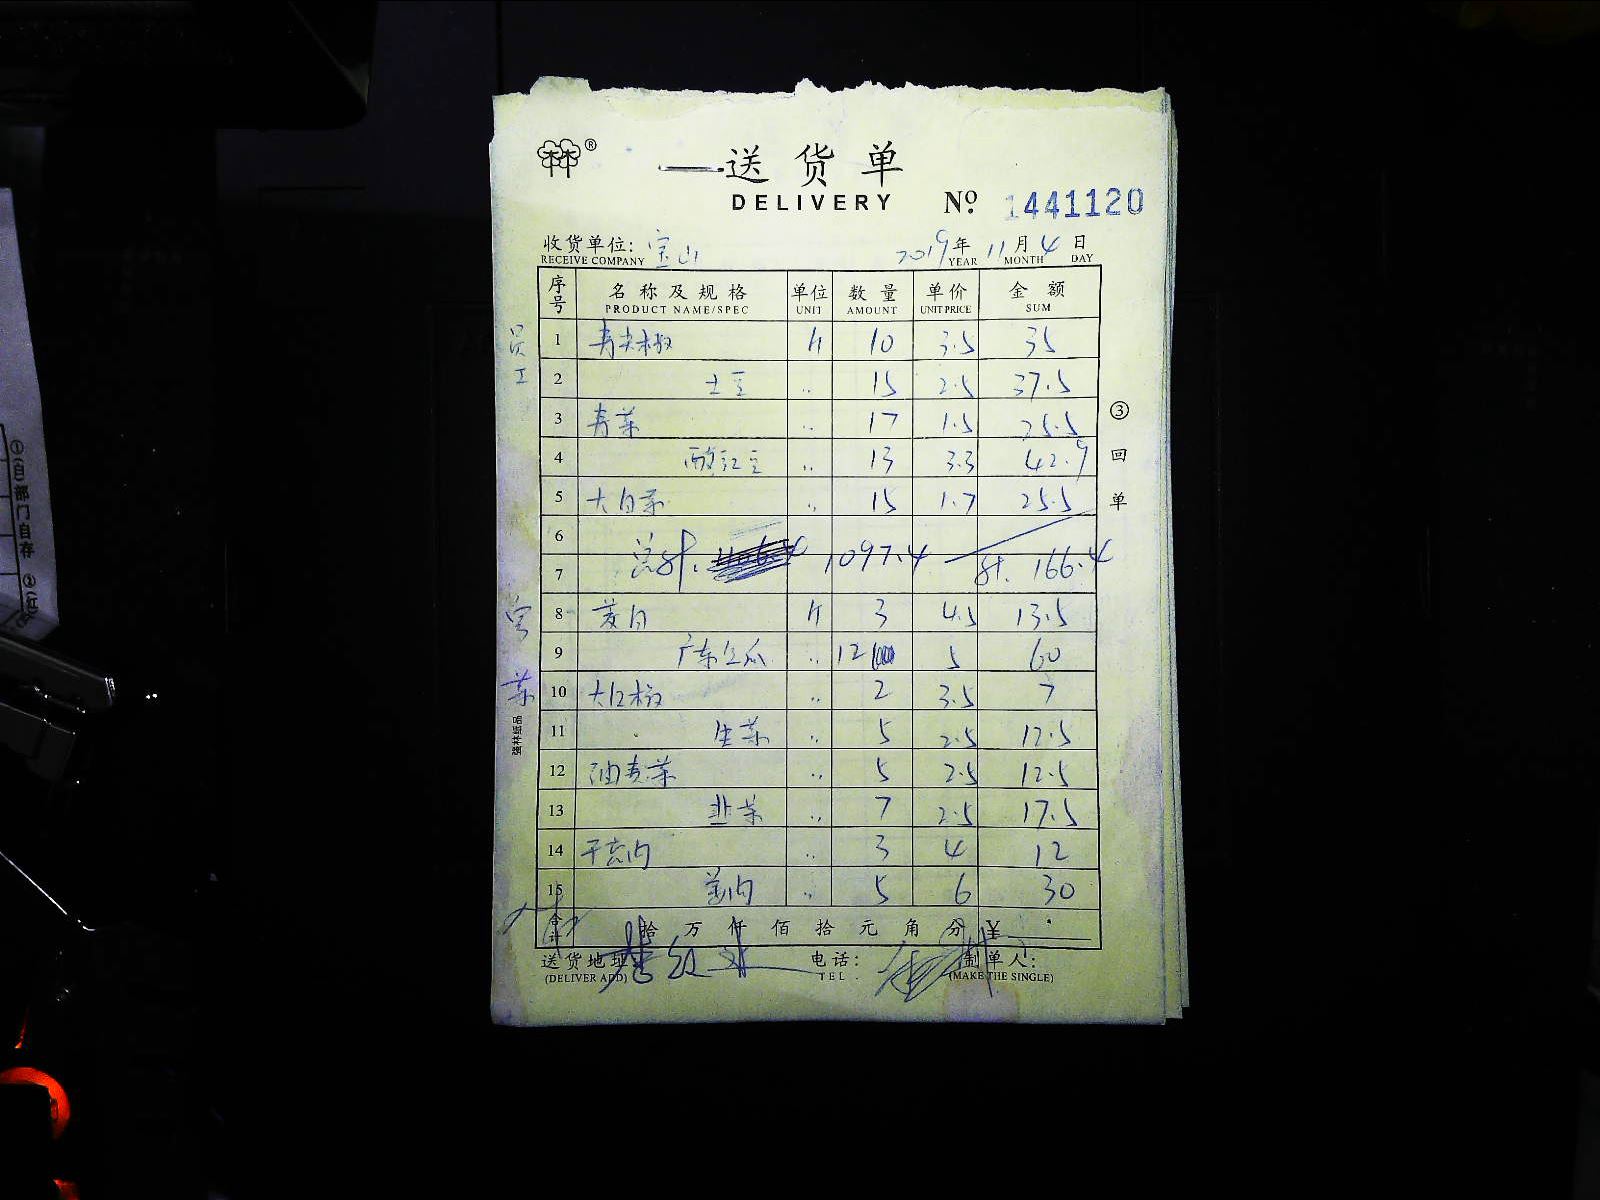 林林®
送货单
DELIVERY
№ 1441120
收货单位: 宝山 2019年11月4日
RECEIVE COMPANY YEAR MONTH DAY
序号 名称及规格 单位 数量 单价 金额
PRODUCT NAME/SPEC UNIT AMOUNT UNIT PRICE SUM
员工
1 青尖椒 斤 10 3.5 35
2 土豆 〃 15 2.5 37.5
3 青菜 〃 17 1.5 25.5
4 酸豇豆 〃 13 3.3 42.9
5 大白菜 〃 15 1.7 25.5
6
总计. 1097.4
7 计. 166.4
客菜
8 茭白 斤 3 4.5 13.5
9 广东 〃 12 5 60
10 大红椒 〃 2 3.5 7
11 生菜 〃 5 2.5 12.5
12 油麦菜 〃 5 2.5 12.5
13 韭菜 〃 7 2.5 17.5
14 〃 3 4 12
15 〃 5 6 30
合计 拾万仟佰拾元角分 ¥
送货地址: 电话: 制单人:
(DELIVER ADD) TEL. (MAKE THE SINGLE)
③回单
强林纸品
①(白)部门自存 ②(红)